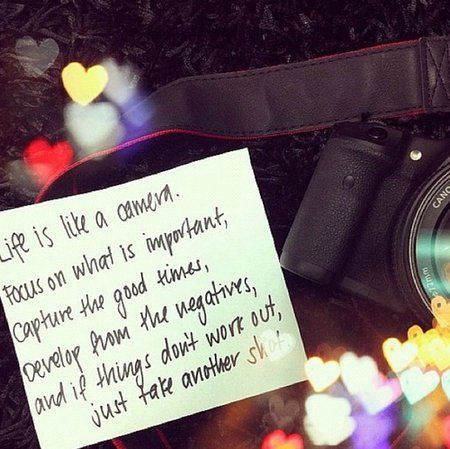 Life is like a camera.
Focus on what is important,
Capture the good times,
Develop from the negatives,
and if things don't work out,
just take another shot.
CANON